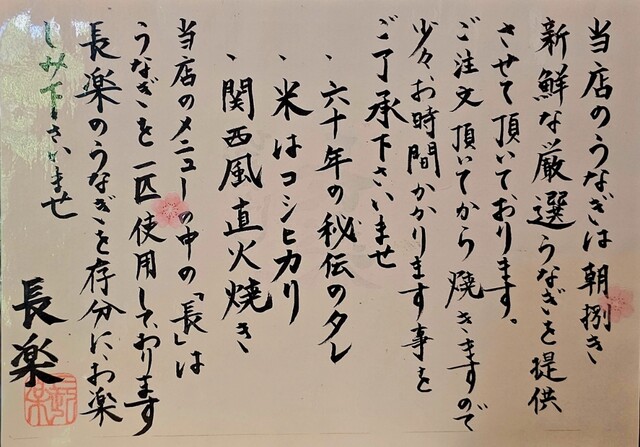 当店のうなぎは朝捌き
新鮮な厳選うなぎを提供
させて頂いております。
ご注文頂いてから焼きますので
少々、お時間かかります事を
ご了承下さいませ
、六十年の秘伝のタレ
、米はコシヒカリ
、関西風直火焼き
当店のメニューの中の「長」は
うなぎを一匹使用しております
長楽のうなぎを存分にお楽
しみ下さいませ
長楽